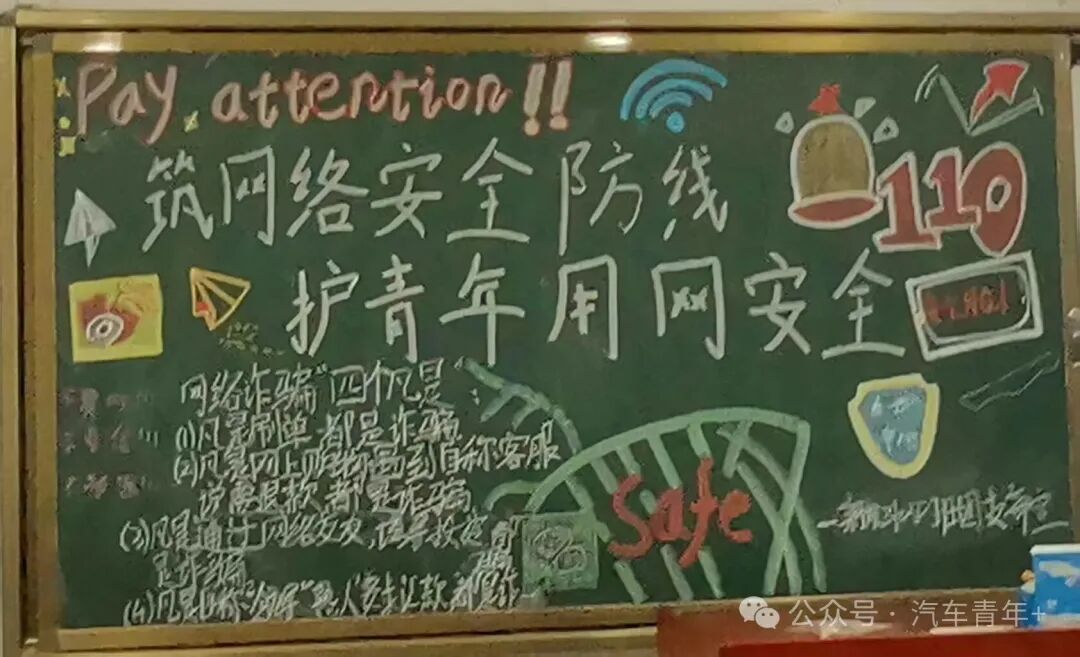 Pay attention!!
筑网络安全防线
110
护青年用网安全
网络诈骗"四个凡是":
(1)凡是刷单都是诈骗
(2)凡是网上购物遇到自称客服
说要退款都是诈骗
(3)凡是通过网络交友,诱导投资
是诈骗
(4)凡是自称"领导""熟人"要求汇款都是诈
Safe
公众号·汽车青年+